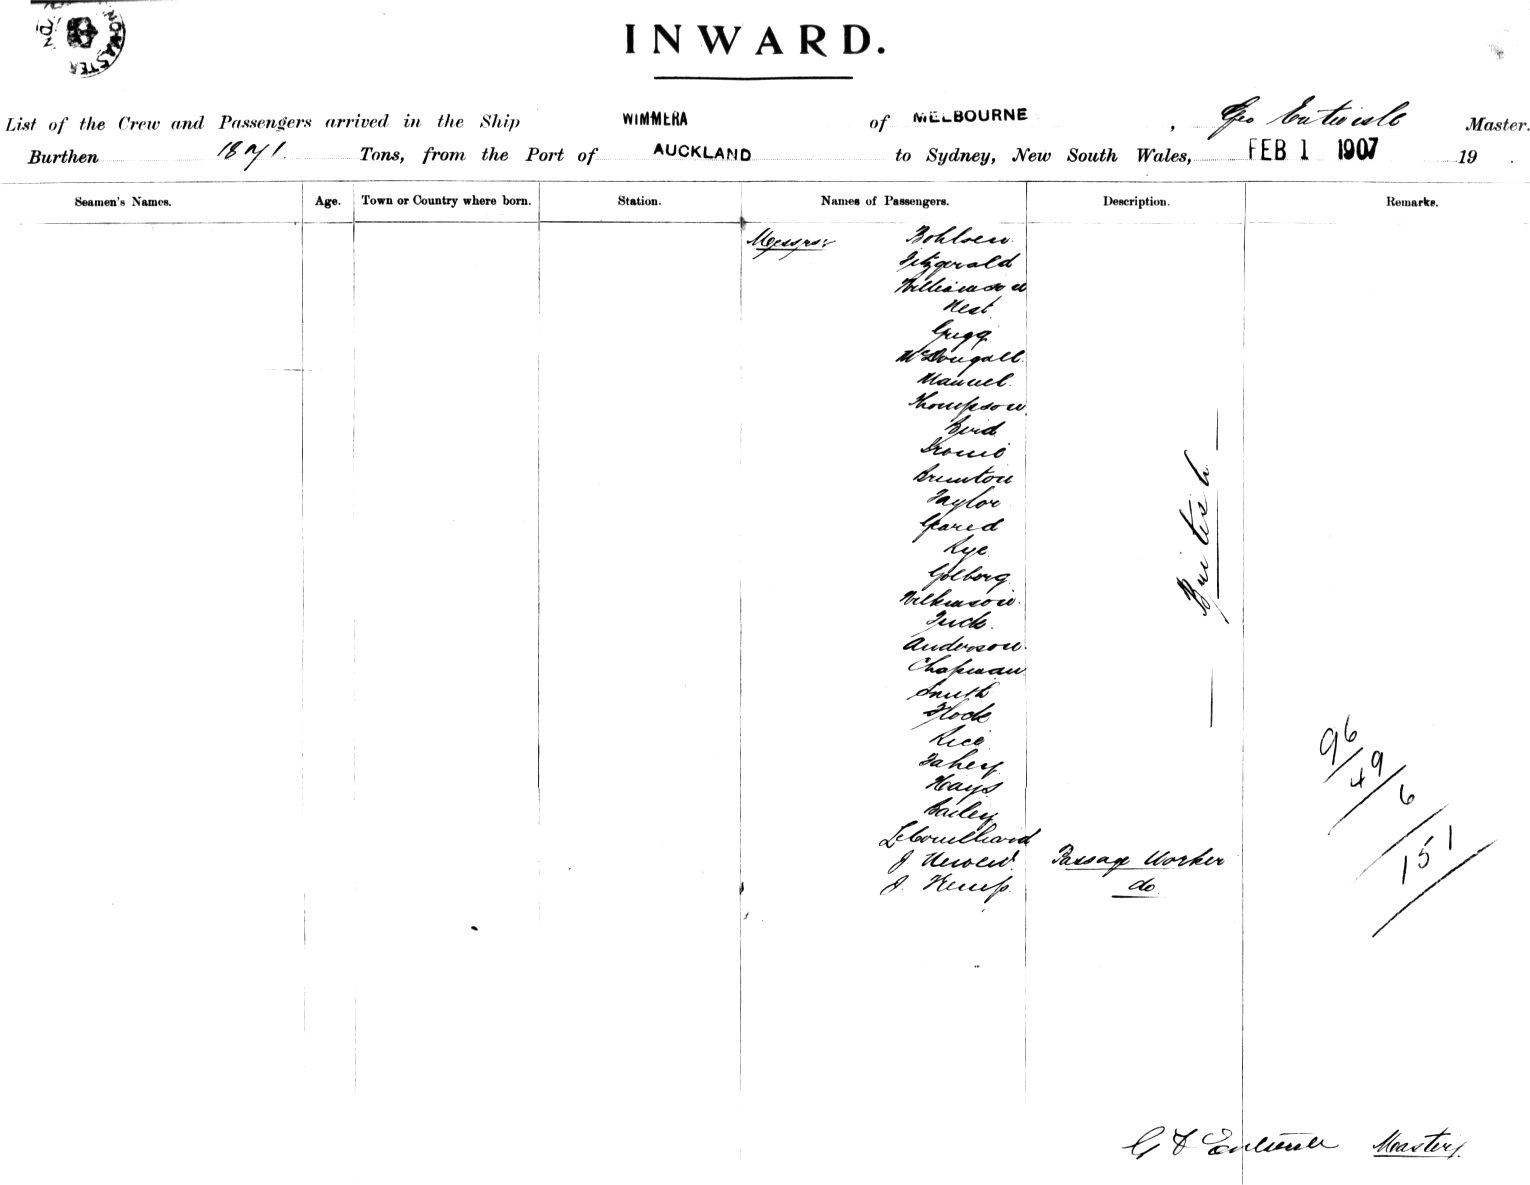 INWARD.
List of the Crew and Passengers arrived in the Ship WIMMERA of MELBOURNE, Geo Entwisle Master.
Burthen 1871. Tons, from the Port of AUCKLAND to Sydney, New South Wales, FEB 1 1907 19 .
Seamen's Names. Age. Town or Country where born. Station. Names of Passengers. Description. Remarks.
Messrs: Bohlsen
Fitzgerald
Williamson
West
Grigg
McDougall
Manuel
Thompson
Bird
Brunton
Taylor
Rye
Golborg
Wilkinson
Tuck
Anderson
Chapman
Smith
Flock
Rice
Fahey
Hays
Bailey
J Passage Worker
J. Kemp do
British
96
49
6
151
G Entwisle Master